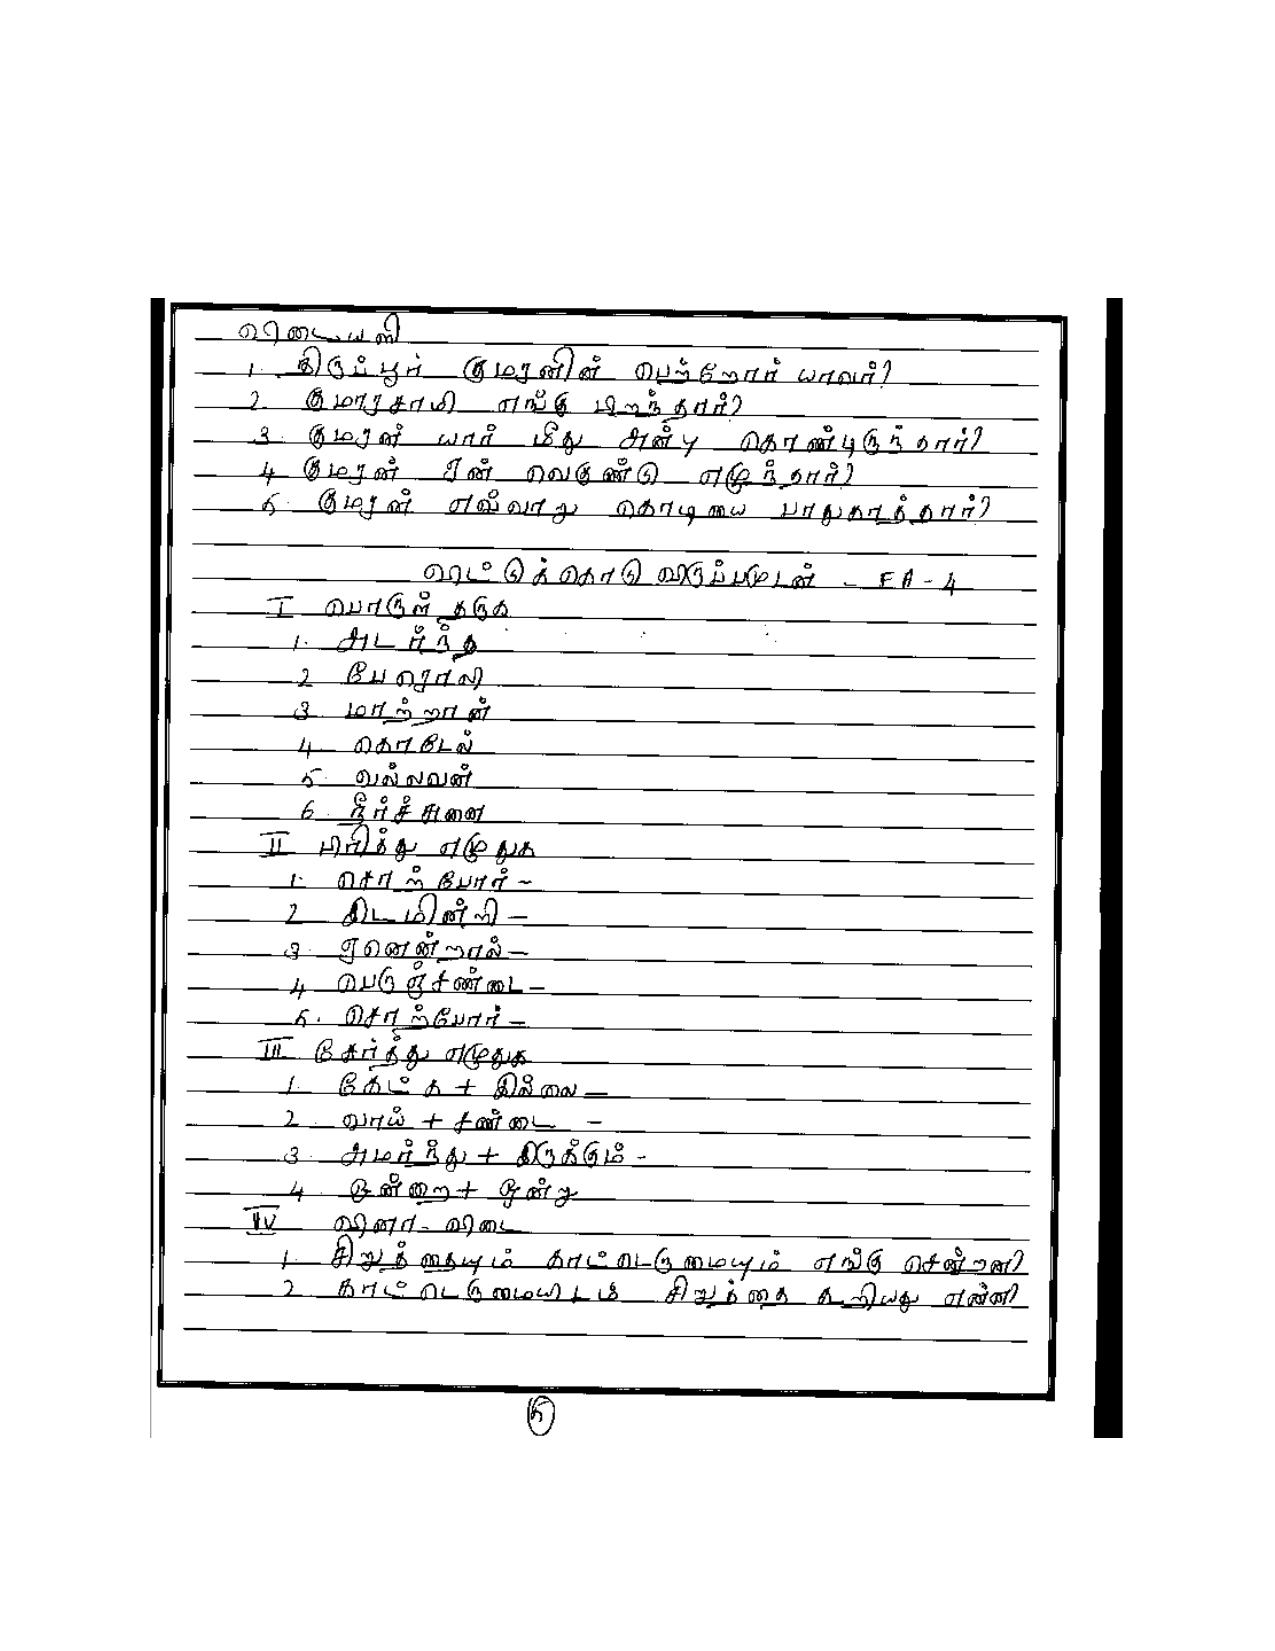 விடையளி
1. திருப்பூர் குமரனின் பெற்றோர் யாவர்?
2. குமாரசாமி எங்கு பிறந்தார்?
3. குமரன் யார் மீது அன்பு கொண்டிருந்தார்?
4 குமரன் ஏன் வெகுண்டு எழுந்தார்?
5. குமரன் எவ்வாறு கொடியை பாதுகாத்தார்?
விட்டுக்கொடு விருப்பமுடன் - FA - 4
I பொருள் தருக
1. அடர்ந்த
2 பேரொலி
3 மாற்றான்
4 கொடேல்
5. வல்லவன்
6 நீர்ச்சுனை
II பிரித்து எழுதுக
1. சொற்போர் -
2 இடமின்றி -
3. ஏனென்றால் -
4 பெருஞ்சண்டை -
5. சொற்போர் -
III சேர்த்து எழுதுக
1. கேட்க + இல்லை -
2 வாய் + சண்டை -
3. அமர்ந்து + இருக்கும் -
4 ஒன்றை + ஒன்று
IV வினா - விடை
1. சிறுத்தையும் காட்டெருமையும் எங்கு சென்றன?
2 காட்டெருமையிடம் சிறுத்தை கூறியது என்ன?
5